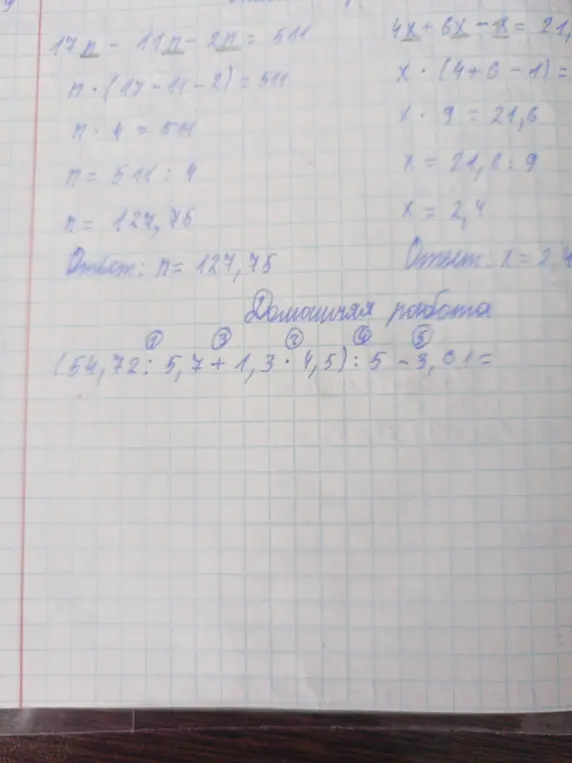 17n - 11n - 2n = 511
n · (17 - 11 - 2) = 511
n · 4 = 511
n = 511 : 4
n = 127,75
Ответ: n = 127,75
4x + 6x - 1x = 21,
x · (4 + 6 - 1) =
x · 9 = 21,6
x = 21,6 : 9
x = 2,4
Ответ: x = 2,4
Домашняя работа
1 3 2 4 5
(54,72 : 5,7 + 1,3 · 4,5) : 5 - 3,01 =